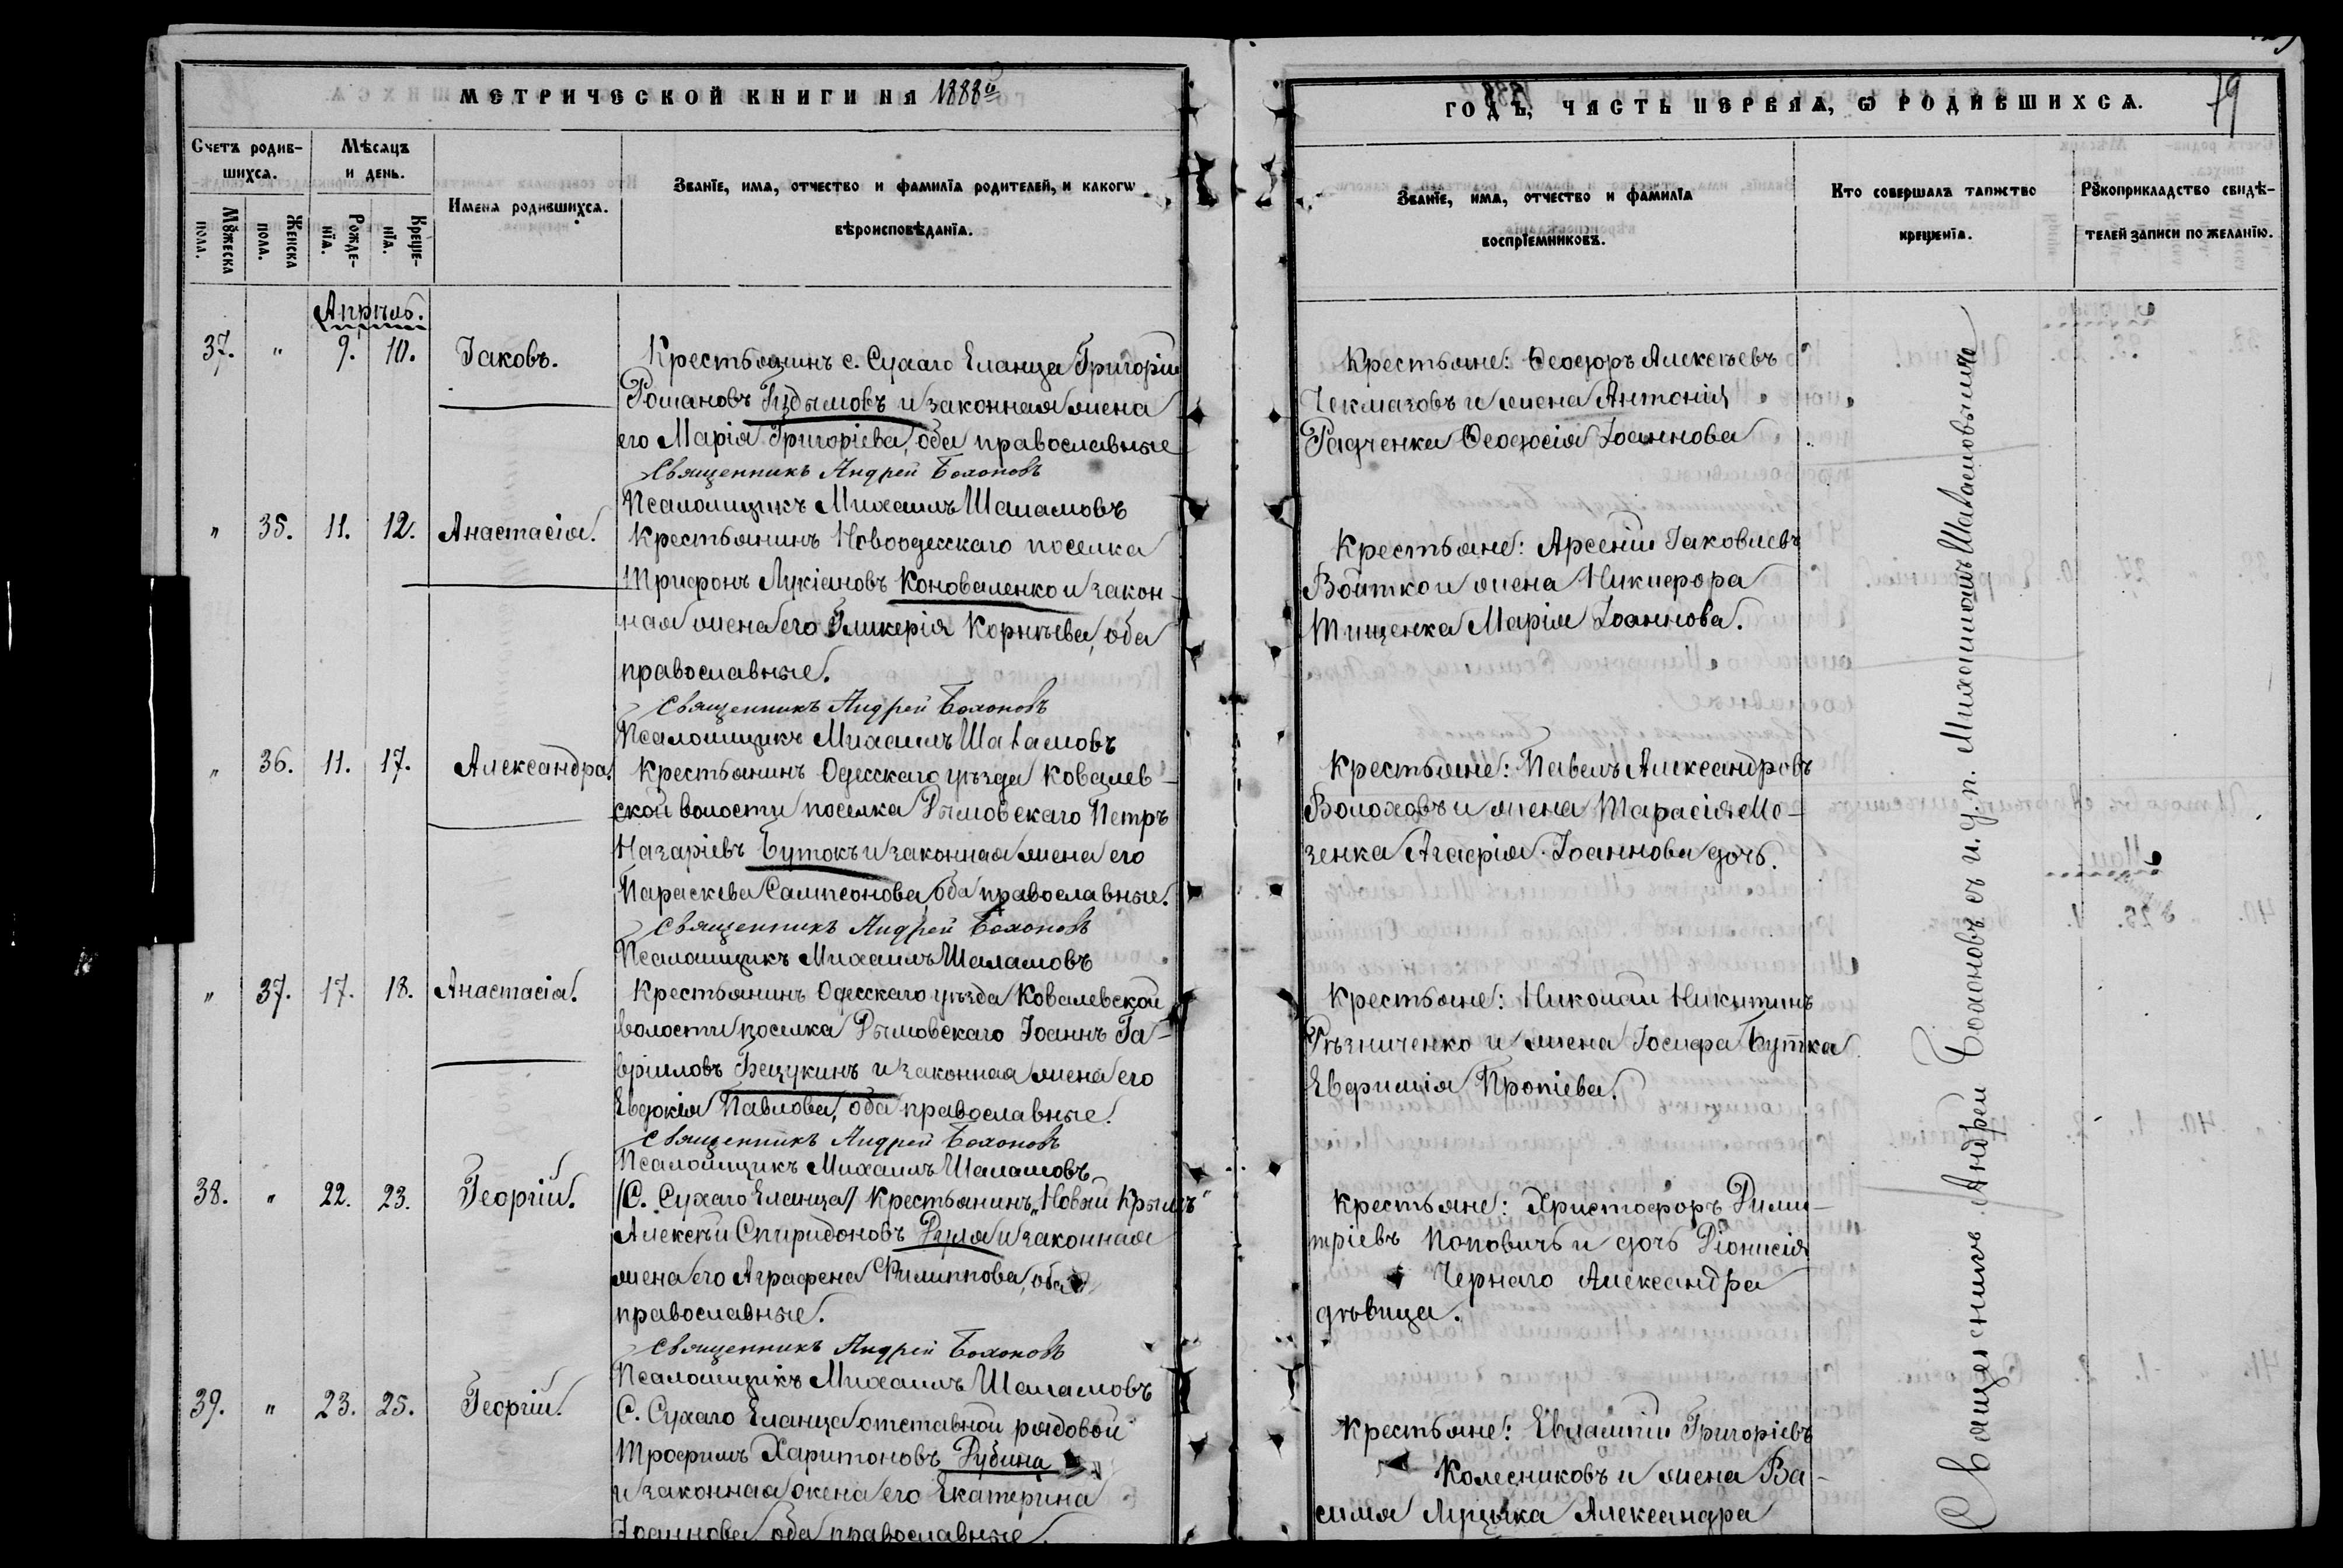 МЕТРИЧЕСКОЙ КНИГИ НА 1888й
Счетъ родив-
шихсѧ.
Мѣсѧцъ
и день.
Мꙋжеска
пола.
Женска
пола.
Рожде-
нїѧ.
Креще-
нїѧ.
Имена родившихсѧ.
Званїе, имѧ, отчество и фамилїѧ родителей, и какогѡ
вѣроисповѣданїѧ.
Апрѣль.
37. " 9. 10. Іаковъ.
Крестьянинъ с. Сухаго Еланца Григорій
Романовъ и законная жена
его Марія Григоріева, оба православные
Священникъ Андрей Бохоновъ
Псаломщикъ Михаилъ Шаламовъ
" 35. 11. 12. Анастасія.
Крестьянинъ Новоодесскаго поселка
Трифонъ Лукіановъ Коноваленко и закон-
ная жена его Гликерія Корнѣева, оба
православные.
Священникъ Андрей Бохоновъ
Псаломщикъ Михаилъ Шаламовъ
" 36. 11. 17. Александра.
Крестьянинъ Одесскаго уѣзда Ковалев-
ской волости поселка Дымовскаго Петръ
Назаріевъ Бутокъ и законная жена его
Параскева Сампсонова, оба православные.
Священникъ Андрей Бохоновъ
Псаломщикъ Михаилъ Шаламовъ
" 37. 17. 18. Анастасія.
Крестьянинъ Одесскаго уѣзда Ковалевской
волости поселка Дымовскаго Іоаннъ Га-
вріиловъ и законная жена его
Евдокія Павлова, оба православные.
Священникъ Андрей Бохоновъ
Псаломщикъ Михаилъ Шаламовъ
38. " 22. 23. Георгій.
/С. Сухаго Еланца/ Крестьянинъ „Новый Крымъ"
Алексѣй Спиридоновъ Дуля и законная
жена его Аграфена Филиппова, оба
православные.
Священникъ Андрей Бохоновъ
Псаломщикъ Михаилъ Шаламовъ
39. " 23. 25. Георгій.
С. Сухаго Еланца отставной рядовой
Трофимъ Харитоновъ Дубина
и законная жена его Екатерина
Іоаннова, оба православные.
ГОДЪ, ЧАСТЬ ПЕРВАЯ, Ѡ РОДИВШИХСѦ.
79
Званїе, имѧ, отчество и фамилїѧ
воспрїемниковъ.
Кто совершалъ таинство
крещенїѧ.
Рꙋкоприкладство свидѣ-
телей записи по желанїю.
Крестьяне: Ѳеодоръ Алексѣевъ
Чекмазовъ и жена Антонія
Радченка Ѳеодосія Іоаннова
Крестьяне: Арсеній Іаковлевъ
Войтко и жена Никифора
Тищенка Марія Іоаннова.
Крестьяне: Павелъ Александровъ
Волоховъ и жена Тарасія Мо-
зенка Агафія Іоаннова дочь.
Крестьяне: Николай Никитинъ
Рѣзниченко и жена Іосифа Бутка
Евфимія
Крестьяне: Христофоръ Дими-
тріевъ Поповичъ и дочь Діонисія
Чернаго Александра
дѣвица.
Крестьяне: Евлампій Григоріевъ
Колесниковъ и жена Ва-
силія Александра
Священникъ Андрей Бохоновъ съ и. д. п. Михаиломъ Шаламовымъ